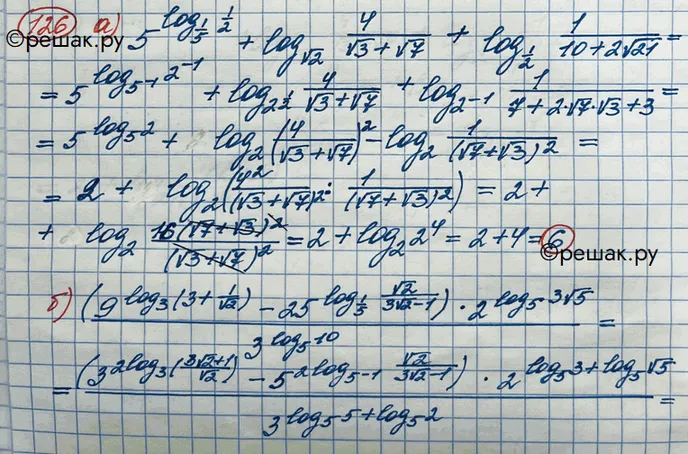 126 а) 5^{log_{1/5} 1/2} + log_{√2} 4/(√3+√7) + log_{1/2} 1/(10+2√21) =
©решак.ру
= 5^{log_{5^{-1}} 2^{-1}} + log_{2^{1/2}} 4/(√3+√7) + log_{2^{-1}} 1/(7+2·√7·√3+3) =
= 5^{log_5 2} + log_2 (4/(√3+√7))^2 - log_2 1/(√7+√3)^2 =
= 2 + log_2 (4^2/(√3+√7)^2 : 1/(√7+√3)^2) = 2 +
+ log_2 16(√7+√3)^2/(√3+√7)^2 = 2 + log_2 2^4 = 2+4 = 6
©решак.ру
б) (9^{log_3 (3+1/√2)} - 25^{log_{1/5} √2/(3√2-1)}) · 2^{log_5 3√5} / 3^{log_5 10} =
= (3^{2log_3 ((3√2+1)/√2)} - 5^{2log_{5^{-1}} √2/(3√2-1)}) · 2^{log_5 3+log_5 √5} / 3^{log_5 5+log_5 2} =